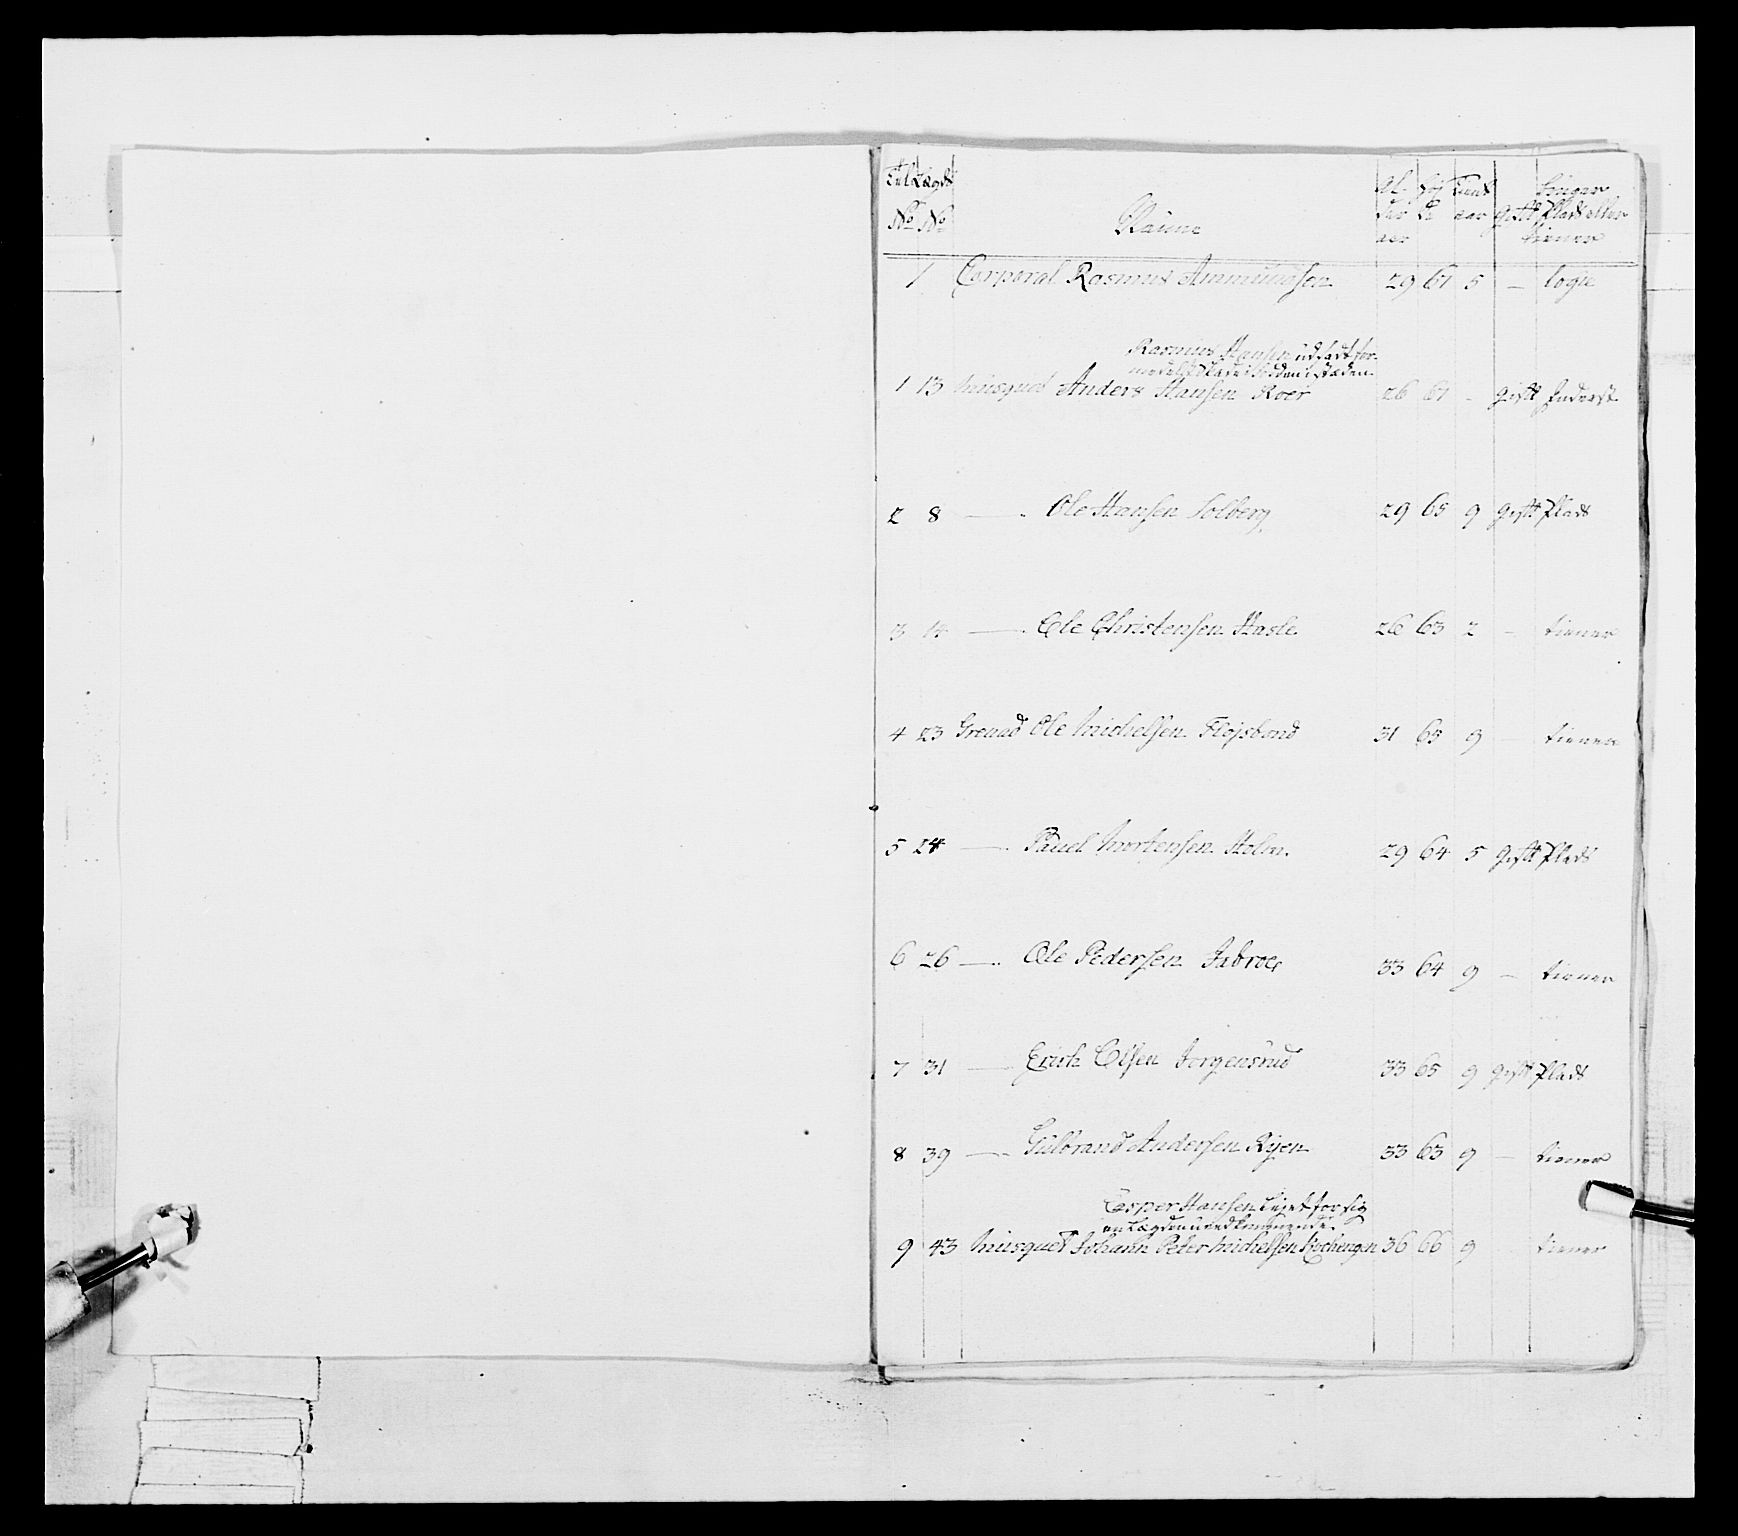 Tal Lægds Al- Høj Tient huuser
No No Naune der de aar Gift Plads eller
aar tiener
1 Corporal Rasmus Ammundsen 29 67 5 – logie
Rasmus Hansen udsadt for
i stæden
1 13 Musquet Anders Hansen Roer 26 67 - Gift Inderst
2 8 — . Ole Hansen Solberg 29 65 9 Gift Plads
3 14 — . Ole Christensen Hasle 26 63 2 – tiener
4 23 Grenad Ole Michelsen Flojsbond 31 65 9 – tiener
5 24 — . Paul Mortensen Holm. 29 64 5 Gift Plads
6 26 — . Ole Pedersen Jabroe 33 64 9 – tiener
7 31 — Erich Olsen Jorgensrud 33 65 9 Gift Plads
8 39 — . Gulbrand Andersen Ryen 33 63 9 – tiener
Casper Hansen Lejet for sig
en Lægden uvedkommende.
9 43 Musquet Johann Peter Michelsen 36 66 9 tiener